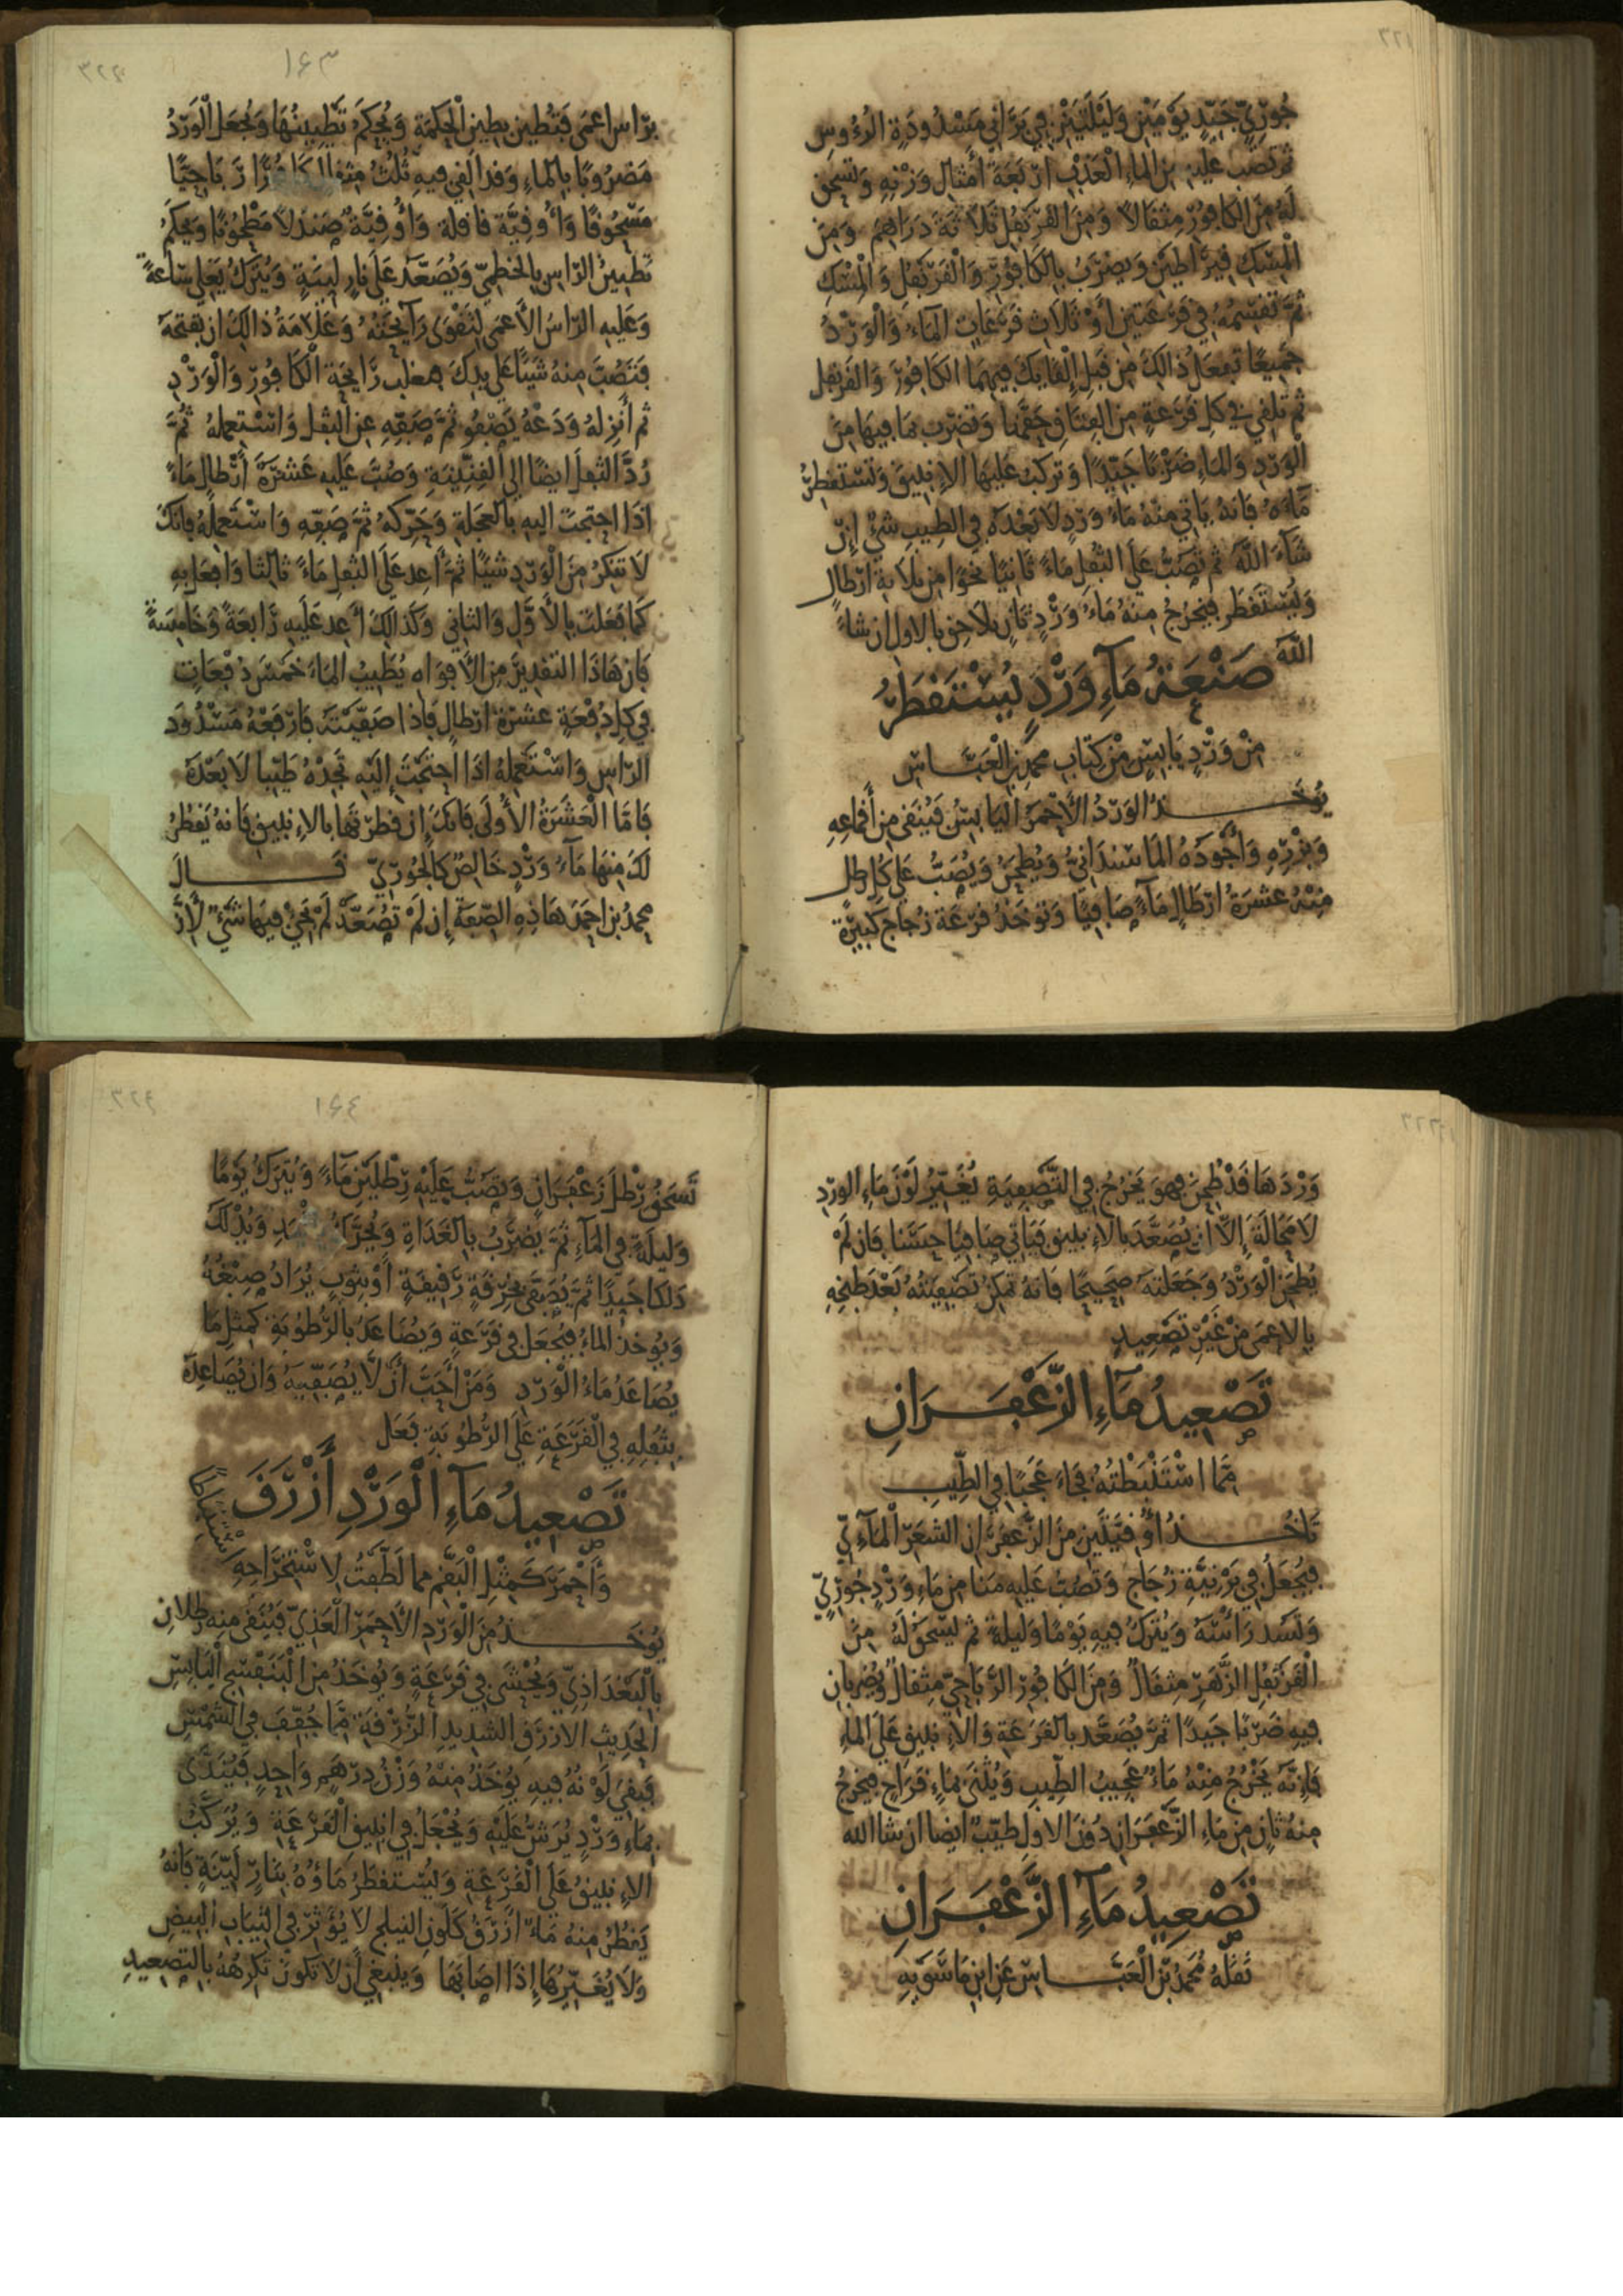 ٣٢١
جُورِيّ جَيّدٍ يَوْمَيْنِ وَلَيْلَتَيْنِ فِي بَرَانِي مَسْدُودَةِ الرُءُوسِ
ثم تصب عليه من الماءِ الْعَذْبِ ارْبَعَةَ أمْثَال وَزْنِهِ وَتسحق
لَهُ مِنَ الكافورْ مِثقَالاً وَمِنَ القَرَنفُلِ ثَلاَثَةَ دَرَاهِمَ وَمِنَ
الْمِسْكِ قيرَاطيْنِ وَيضرَبُ بِالكَافُورْ وَالْقَرَنْفُلْ وَالْمِسْكِ
ثمَّ تقسِمُهُ في قَرْعَتين أَوْ ثَلاَثِ قَرْعَاتٍ المآءُ وَالْوَرْدُ
جَمِيعًا تفعَلُ ذالكَ مِن قَبلِ إلْقايِكَ فيهمَا الكَافُورَ وَالقَرنفل
ثم تلقي في كلِ قَرْعَةٍ مِن العِتَاقِ حَقّهَا وَتضرب مَا فِيهَا مِنَ
الْوَرْدِ وَالماءِ ضَرْبًا جَيّدًا وَتركبُ عَلَيهَا الإنبيقَ وَتسْتقطِرُ
مَآءَهُ فَانهُ يَاتي مِنْهُ مَاءُ وَرْدٍ لاَ بَعْدَهُ فِي الطِيبِ شَيْءٌ إِنْ
شَآءَ اللَّهُ ثم تصَبُّ عَلَى الثُّفلِ مَاءً ثَانيًا نحْوًا مِن ثلاثةِ ارْطالٍ
وَيُسْتَقطَر فيخرُجُ مِنهُ مَاءُ وَرْدٍ ثَانٍ يلاَحِق بالاول ان شاءَ
اللَّهُ
صَنْعَةُ مَآءِ وَرْدٍ يُسْتَقطَرُ
مِنْ وَرْدٍ يَابِسٍ مِنْ كِتَابِ محمدِ بنِ الْعَبَّاس
يُوخَذ الوَرْدُ الأَحْمَرُ الْيَابِسُ فَيُنَقى مِن أَقْمَاعِهِ
وَبِزْرِهِ وَأَجْوَدُهُ المَاسَنْدَانيُّ وَيُطحَنُ وَيُصَبُّ عَلَى كلِ رطل
مِنْهُ عَشرَةُ ارْطَالٍ مَآءً صَافِيًا وَتوخَذ قرْعَة زُجاج كَبيرَة
١٦٣
٣٢٢
برَاس اعمَى فَتُطين بطينِ الْحِكمَة وَيُحْكَمُ تَطْيينُهَا وَيُجعَل الْوَرْدُ
مَضرُوبًا بِالماءِ وَقد القي فيهِ ثُلُثُ مثقال كافورًا رَبَاحِيًّا
مَسْحُوقًا وَأُوقيَّة قاقلة وَأُوقِيَّة صَندَلاً مَطْحُونًا وَيحكَمُ
تَطيينُ الرَاسِ بِالخطميّ وَيُصَعَّد عَلَى نارٍ لَينَةٍ وَيُترَكُ يَغلي سَاعةً
وَعَليهِ الرَاسُ الأَعمَى لِتَقْوَى رَآيحَتهُ وَعَلاَمَةُ ذالكَ ان تفتحَهُ
فَتَصُبَّ مِنهُ شَيئًا عَلى يدكَ فتغلب رَايحَة الكَافُورْ وَالْوَرْدِ
ثم أنزِلهُ وَدَعْهُ يَصْفُو ثمَّ صَفِّهِ عَن الثفل وَاسْتَعملهُ ثُمَّ
رُدَّ الثفلَ ايضًا الى الْقِنِّينَةِ وَصُبَّ عَلَيهِ عَشَرَةَ أرْطالٍ مَاءً
اذَا احتجتَ اليهِ بالعجَلةِ وَحَرّكهُ ثمَّ صَفِّهِ وَاسْتَعملهُ فانكَ
لاَ تنكرُ مِنَ الْوَرْدِ شيئًا ثمَّ أعِد عَلَى الثفلِ مَاءً ثالثا وَافعَل بهِ
كمَا فعَلتَ بالأَوّلِ وَالثانِي وَكَذالكَ أعِد عَلَيهِ رَابعَةً وَخَامِسَةً
فَان هَاذَا التقدِيرَ مِن الأَفوَاه يُطَيبُ المَاءَ خَمْسَ دُفْعَاتٍ
في كلِ دُفعَةٍ عَشرَة ارْطالٍ فَاذا صَفّيْتهُ فَارْفَعْهُ مَسْدُودَ
الرَاسِ وَاسْتَعْملهُ اذَا احتَجْتَ إليهِ تَجدْهُ طَيّبا لاَ بَعْدَهُ
فَامَّا الْعَشَرَةُ الأُولَى فَانكَ إن قطرْتهَا بالانبيقِ فَانهُ يَقطُر
لكَ مِنهَا مَآءُ وَرْدٍ خَالِصٌ كَالجُورْيّ قَــالَ
محمدُ بن احمَد هَاذِهِ الصّفَةُ إن لَمْ تُصَعّدْ لَمْ يَجِئْ فيهَا شَيْءٌ لأَنَّ
٣٢٣
وَرْدَهَا قَدْ طُحِنَ فهوَ يَخرُجُ فِي التّصْفِيَةِ يُغَيّرُ لَوْنَ مَاءِ الورْدِ
لاَ مَحَالَةَ إلاَّ ان يُصَعَّدَ بالانبيقِ فَيَاتي صَافيًا حَسَنا فَان لَمْ
يُطحَنِ الْوَرْدُ وَجَعَلتهُ صَحِيحًا فَانهُ تمكنُ تصْفِيَتُهُ بَعْدَ طَبخِهِ
بالاعمَى مِنْ غَيْرِ تَصْعِيدٍ
تَصْعِيدُ مَآءِ الزَّعْفَرَانِ
مِمَّا اسْتَنبَطْتُهُ فجَاءَ عَجَبًا في الطِّيبِ
تَاخُذ أُوقيَّتَينِ مِنَ الزّعفرَانِ الشعَرِ المآءيّ
فيُجعَلُ فِي بَرْنيَّةٍ زُجَاج وَتَصُبُّ عَلَيهِ مَنًا مِن مَاءِ وَرْدٍ جُورْيّ
وَتَسُد رَاسَهُ وَيُترَكُ فيهِ يَوْمًا وَليلَةً ثم يسحَقُ لَهُ مِنَ
الْقَرَنفُلِ الزّهَرِ مِثقَالٌ وَمِنَ الكَافورِ الرَّبَاحِيّ مِثقالٌ وَيُضرَبان
فِيهِ ضَرْبًا جَيدًا ثمَّ يُصَعَّد بالقرعَة وَالانبيقِ عَلَى الماءِ
فَإنّهُ يَخْرُجُ مِنْهُ مَاءٌ عَجيبُ الطِيبِ وَيُثنَى بمَاءٍ قَرَاح فيخرُجُ
مِنهُ ثانٍ مِن مَاءِ الزّعفَرَان دُونَ الاولِ طَيّبٌ ايضا ان شا الله
تَصْعِيدُ مَآءِ الزَّعْفَرَانِ
نَقَلهُ مُحَمدُ بْنُ الْعَبَّاسِ عَن ابْنِ مَاسَوَيهِ
١٦٤
٣٢٤
تَسحَقُ رِطْلَ زَعْفَرَانٍ وَتصُبُّ عَلَيْهِ رِطْلَيْنِ مَآءً وَيُترَكُ يَوْمًا
وَليلَةً فِي المَآءِ ثمَّ يُضرَبُ بِالغَدَاةِ وَيُحَرَّكُ وَيُدْلَكُ
دَلكًا جَيدًا ثمَّ يُصَفّى بِخِرْقَةٍ رَقِيقَةٍ أوْ بِثوبٍ يُرَادُ صِبْغُهُ
وَيُوخَذُ الماءُ فيُجْعَل فِي قَرْعَةٍ وَيُصَاعَدُ بالرّطوبَةِ كمِثلِ مَا
يُصَاعَدُ مَاءُ الْوَرْدِ وَمَنْ أحَبَّ أنْ لاَّ يُصَفِّيَهُ وَان يُصَاعِدَهُ
بِثفلِهِ فِي الْقَرْعَةِ عَلَى الرُطُوبَةِ فَعَل
تَصْعِيدُ مَآءِ الْوَرْدِ أزْرَقَ
وَأحْمَرَ كَمِثْلِ الْبَقّمِ مما لَطّفتُ لاسْتِخرَاجِهِ
يُوخَذ مِنَ الْوَرْدِ الأَحمَرِ الْعَذيّ فيُنَقى مِنهِ رطلان
بِالْبَغْدَادِيّ وَيُحشَى فِي قَرْعَةٍ وَيُوخَذُ مِن البَنَفْسَجِ الْيَابِسِ
الحَدِيثِ الازرَق الشديدِ الزُّرْقَة مِمَّا جُفِّفَ فِي الشمْسِ
فَبَقيَ لَوْنهُ فِيهِ يُوخَذُ مِنْهُ وَزْنُ دِرْهَمٍ وَاحِدٍ فَيُنَدَّى
بِمَاءِ وَرْدٍ يُرَشُّ عَلَيْهِ وَيُجْعَلُ فِي انبيقِ الْقَرْعَةِ وَيُرَكَّبُ
الانبيقُ عَلَى الْقَرْعَةِ وَيُسْتَقطَرُ مَاؤُهُ بنَارٍ لَيّنَةٍ فَانهُ
يَقطُرُ مِنهُ مَاءٌ ازْرَقُ كَلَونِ النيلَجِ لاَ يُؤَثّرُ فِي الثيَابِ البيضِ
وَلاَ يُغَيّرُهَا إذَا اصَابَهَا وَينبَغي أن لاَ تكونَ تكرهُهُ بِالتصعيدِ